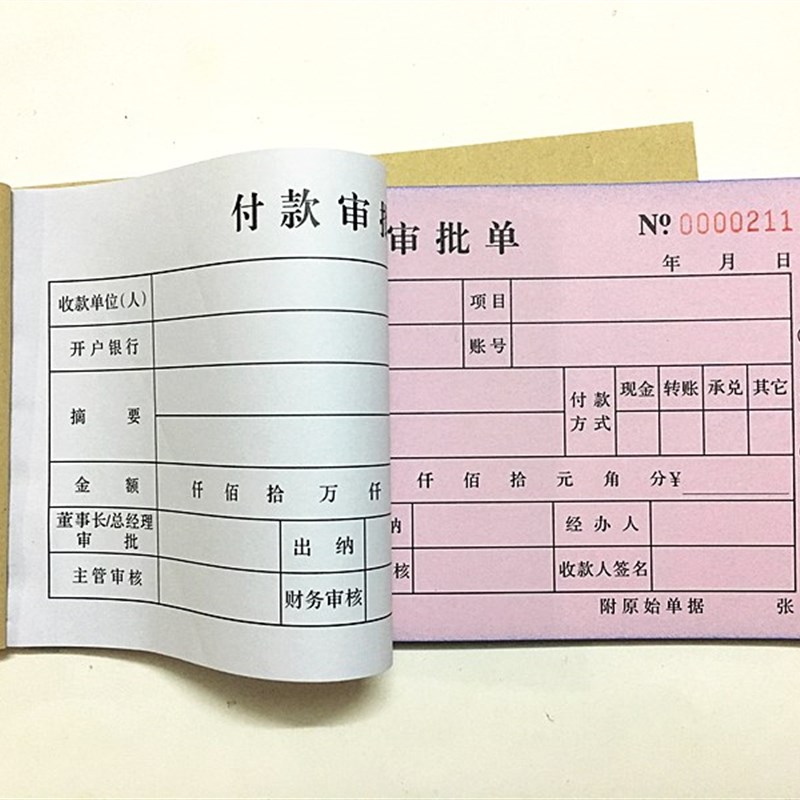 付款审
收款单位(人)
开户银行
摘要
金额 仟佰拾万仟
董事长/总经理
审批
出纳
主管审核
财务审核
审批单 № 0000211
年月日
项目
账号
付款
方式
现金 转账 承兑 其它
仟佰拾元角分¥
纳 经办人
核 收款人签名
附原始单据 张